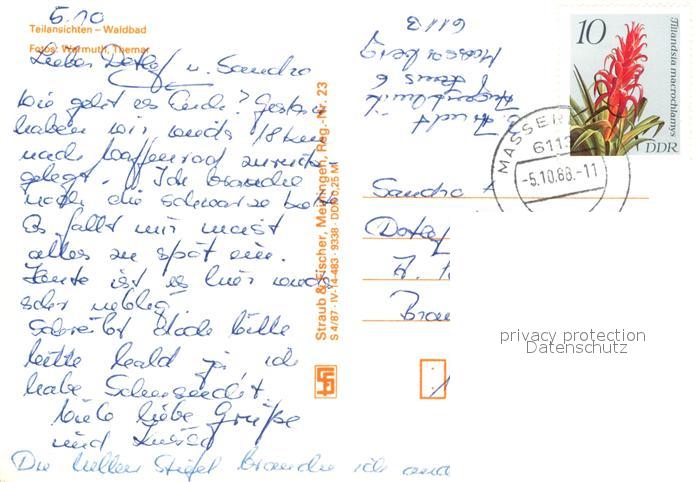 5.10
Teilansichten – Waldbad
Fotos: Warmuth, Themar
Lieber Detlef u. Sandra
Wie geht es Euch? Gestern
haben wir wieder 18 km
nach zurück
gelegt. Ich brauche
noch die schwarze
Es fällt mir meist
alles zu spät ein.
Heute ist es hier
sehr neblig.
Schreibt doch bitte
bitte bald ja ich
habe Sehnsucht.
Viele liebe Grüße
und
Die hellen Stiefel brauche ich
Straub & Fischer, Meiningen, Reg.-Nr. 23
S 4/87 · IV-14-483 · 9338 · DDR 0,25 M
Haus 6
Masserberg
6113
10
Tillandsia macrochlamys
DDR
MASSER
6113
-5.10.88.-11
Sandra
Detlef
A.
privacy protection
Datenschutz